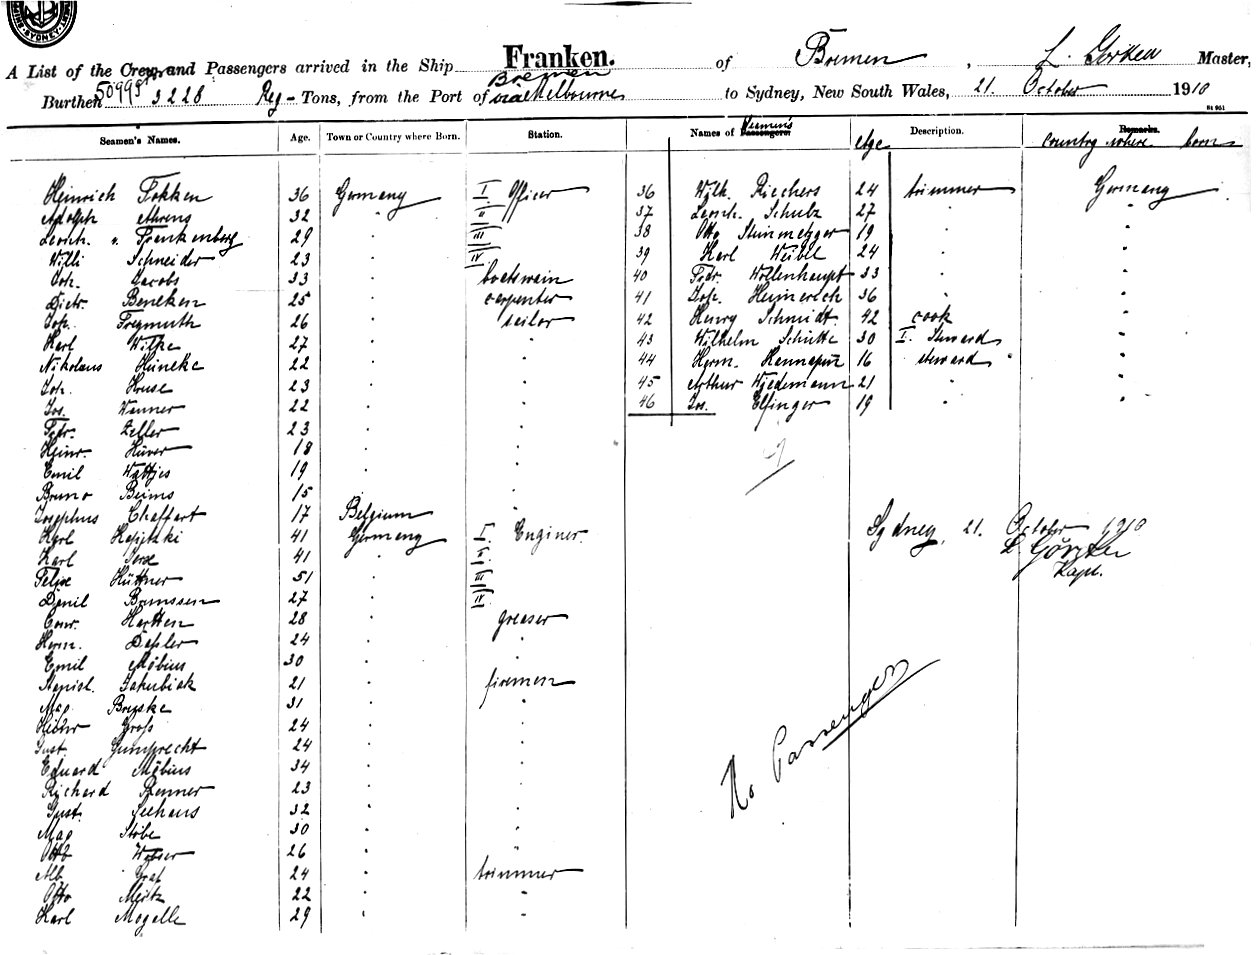 SYDNEY
Franken.
A List of the Crew and Passengers arrived in the Ship Franken. of Bremen, L. Görken Master,
Burthen 3228 Reg-Tons, from the Port of Bremen via Melbourne to Sydney, New South Wales, 21. October 1910
Seamen's Names. Age. Town or Country where Born. Station. Names of Seemen's Passengers. Age Description. Remarks. Country where born
Heinrich Fokken 36 Germany I. Officer 36 Wilh. Riechers 24 trimmer Germany
Adolph Ahrens 32 " II " 37 Leonh. Schulz 27 " "
Leonh. v. Frankenberg 29 " III " 38 Otto Steinmetzger 19 " "
Willi Schneider 23 " IV " 39 Karl Weibel 24 " "
Joh. Jacobs 33 " boatswain 40 Fritdr. Wollenhaupt 33 " "
Dietr. Beneken 25 " carpenter 41 Joh. Heinerich 36 " "
Joh. Freymuth 26 " sailor 42 Henry Schmidt. 42 cook "
Karl Wilke 27 " " 43 Wilhelm Schütte 30 I. Steward "
Nikolaus Hüneke 22 " " 44 Herm. 16 steward "
Joh. Kruse 23 " " 45 Arthur Wiedemann 21 " "
Jos. Wanner 22 " " 46 Jos. Elfinger 19 " "
Fritdr. Zeller 23 " "
Heinr. Hüver 18 " "
Emil Wattjes 19 " "
Bruno Beims 15 " "
Josephus Chaffart 17 Belgium "
Karl 41 Germany I. Enginer. Sydney, 21. October 1910
Karl 41 " II " L. Görken
Felix Hüttner 51 " III " Kapt.
Daniel Brunssen 27 " IV "
Conr. Hartten 28 " greaser
Herm. Dahler 24 " "
Emil Möbius 30 "
Stanisl. Jakubiak 21 " firemen
Max Breyske 31 " "
Groß 24 " "
Gust. Gumprecht 24 " "
Eduard Möbius 34 " "
Richard Renner 23 " "
Gust. Seehaus 32 " "
Max Stöbe 30 " "
Otto Weser 26 " "
Alb. Graf 24 " trimmer
Otto Meitz 22 " "
Karl Mogalle 29 " "
No Passenger